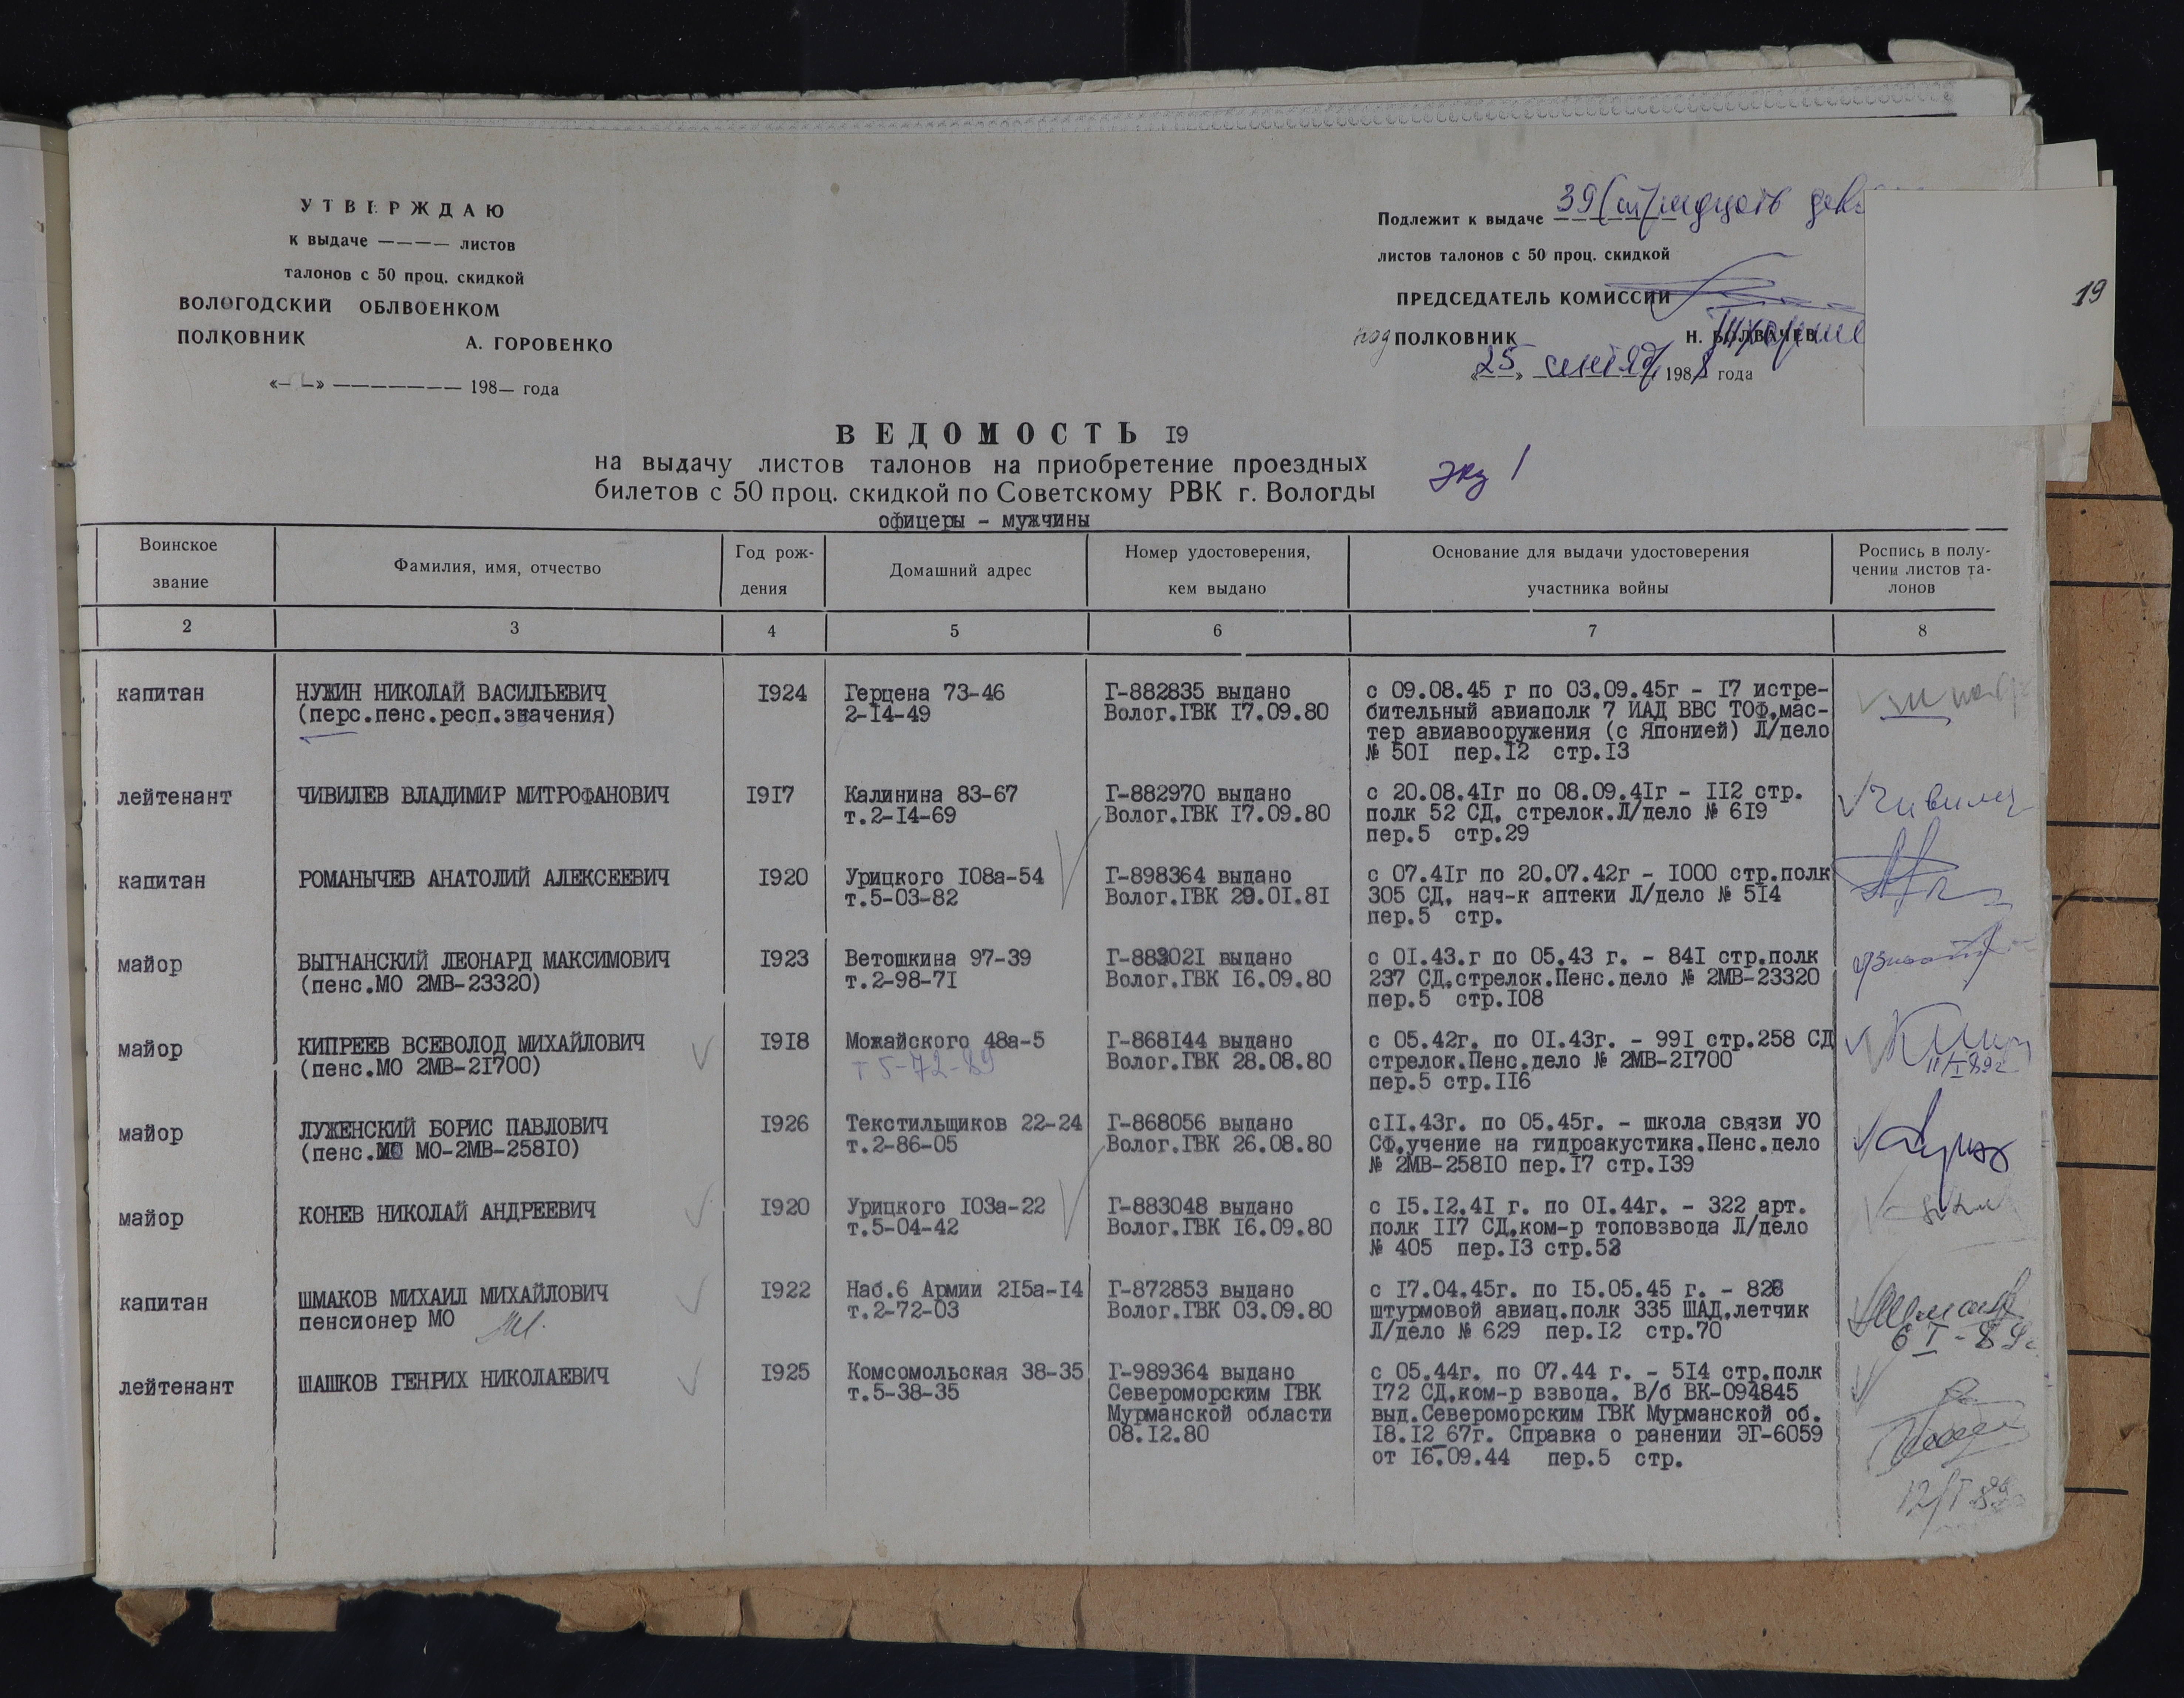 УТВЕРЖДАЮ
к выдаче ———— листов
талонов с 50 проц. скидкой
ВОЛОГОДСКИЙ ОБЛВОЕНКОМ
ПОЛКОВНИК А. ГОРОВЕНКО
«——» ——————— 198— года
Подлежит к выдаче 39
листов талонов с 50 проц. скидкой
ПРЕДСЕДАТЕЛЬ КОМИССИИ
под ПОЛКОВНИК Н. БОЛВАЧЕВ
«25» 1988 года
19
ВЕДОМОСТЬ I9
на выдачу листов талонов на приобретение проездных
билетов с 50 проц. скидкой по Советскому РВК г. Вологды
экз 1
офицеры - мужчины
Воинское
звание
Фамилия, имя, отчество
Год рож-
дения
Домашний адрес
Номер удостоверения,
кем выдано
Основание для выдачи удостоверения
участника войны
Роспись в полу-
чении листов та-
лонов
2 3 4 5 6 7 8
капитан
НУЖИН НИКОЛАЙ ВАСИЛЬЕВИЧ
(перс.пенс.респ.значения)
I924
Герцена 73-46
2-I4-49
Г-882835 выдано
Волог.ГВК I7.09.80
с 09.08.45 г по 03.09.45г - I7 истре-
бительный авиаполк 7 ИАД ВВС ТОФ,мас-
тер авиавооружения (с Японией) Л/дело
№ 50I пер.I2 стр.I3
лейтенант
ЧИВИЛЕВ ВЛАДИМИР МИТРОФАНОВИЧ
I9I7
Калинина 83-67
т.2-I4-69
Г-882970 выдано
Волог.ГВК I7.09.80
с 20.08.4Iг по 08.09.4Iг - II2 стр.
полк 52 СД, стрелок.Л/дело № 6I9
пер.5 стр.29
капитан
РОМАНЫЧЕВ АНАТОЛИЙ АЛЕКСЕЕВИЧ
I920
Урицкого I08а-54
т.5-03-82
Г-898364 выдано
Волог.ГВК 29.0I.8I
с 07.4Iг по 20.07.42г - I000 стр.полк
305 СД, нач-к аптеки Л/дело № 5I4
пер.5 стр.
майор
ВЫГНАНСКИЙ ЛЕОНАРД МАКСИМОВИЧ
(пенс.МО 2МВ-23320)
I923
Ветошкина 97-39
т.2-98-7I
Г-88302I выдано
Волог.ГВК I6.09.80
с 0I.43.г по 05.43 г. - 84I стр.полк
237 СД,стрелок.Пенс.дело № 2МВ-23320
пер.5 стр.I08
майор
КИПРЕЕВ ВСЕВОЛОД МИХАЙЛОВИЧ
(пенс.МО 2МВ-2I700)
I9I8
Можайского 48а-5
т 5-72-89
Г-868I44 выдано
Волог.ГВК 28.08.80
с 05.42г. по 0I.43г. - 99I стр.258 СД
стрелок.Пенс.дело № 2МВ-2I700
пер.5 стр.II6
11/I 89г
майор
ЛУЖЕНСКИЙ БОРИС ПАВЛОВИЧ
(пенс. МО-2МВ-258I0)
I926
Текстильщиков 22-24
т.2-86-05
Г-868056 выдано
Волог.ГВК 26.08.80
сII.43г. по 05.45г. - школа связи УО
СФ,учение на гидроакустика.Пенс.дело
№ 2МВ-258I0 пер.I7 стр.I39
майор
КОНЕВ НИКОЛАЙ АНДРЕЕВИЧ
I920
Урицкого I03а-22
т.5-04-42
Г-883048 выдано
Волог.ГВК I6.09.80
с I5.I2.4I г. по 0I.44г. - 322 арт.
полк II7 СД,ком-р топовзвода Л/дело
№ 405 пер.I3 стр.53
капитан
ШМАКОВ МИХАИЛ МИХАЙЛОВИЧ
пенсионер МО
I922
Наб.6 Армии 2I5а-I4
т.2-72-03
Г-872853 выдано
Волог.ГВК 03.09.80
с I7.04.45г. по I5.05.45 г. - 826
штурмовой авиац.полк 335 ШАД,летчик
Л/дело № 629 пер.I2 стр.70
6 I - 89г
лейтенант
ШАШКОВ ГЕНРИХ НИКОЛАЕВИЧ
I925
Комсомольская 38-35
т.5-38-35
Г-989364 выдано
Североморским ГВК
Мурманской области
08.I2.80
с 05.44г. по 07.44 г. - 5I4 стр.полк
I72 СД,ком-р взвода. В/б ВК-094845
выд.Североморским ГВК Мурманской об.
I8.I2 67г. Справка о ранении ЭГ-6059
от I6.09.44 пер.5 стр.